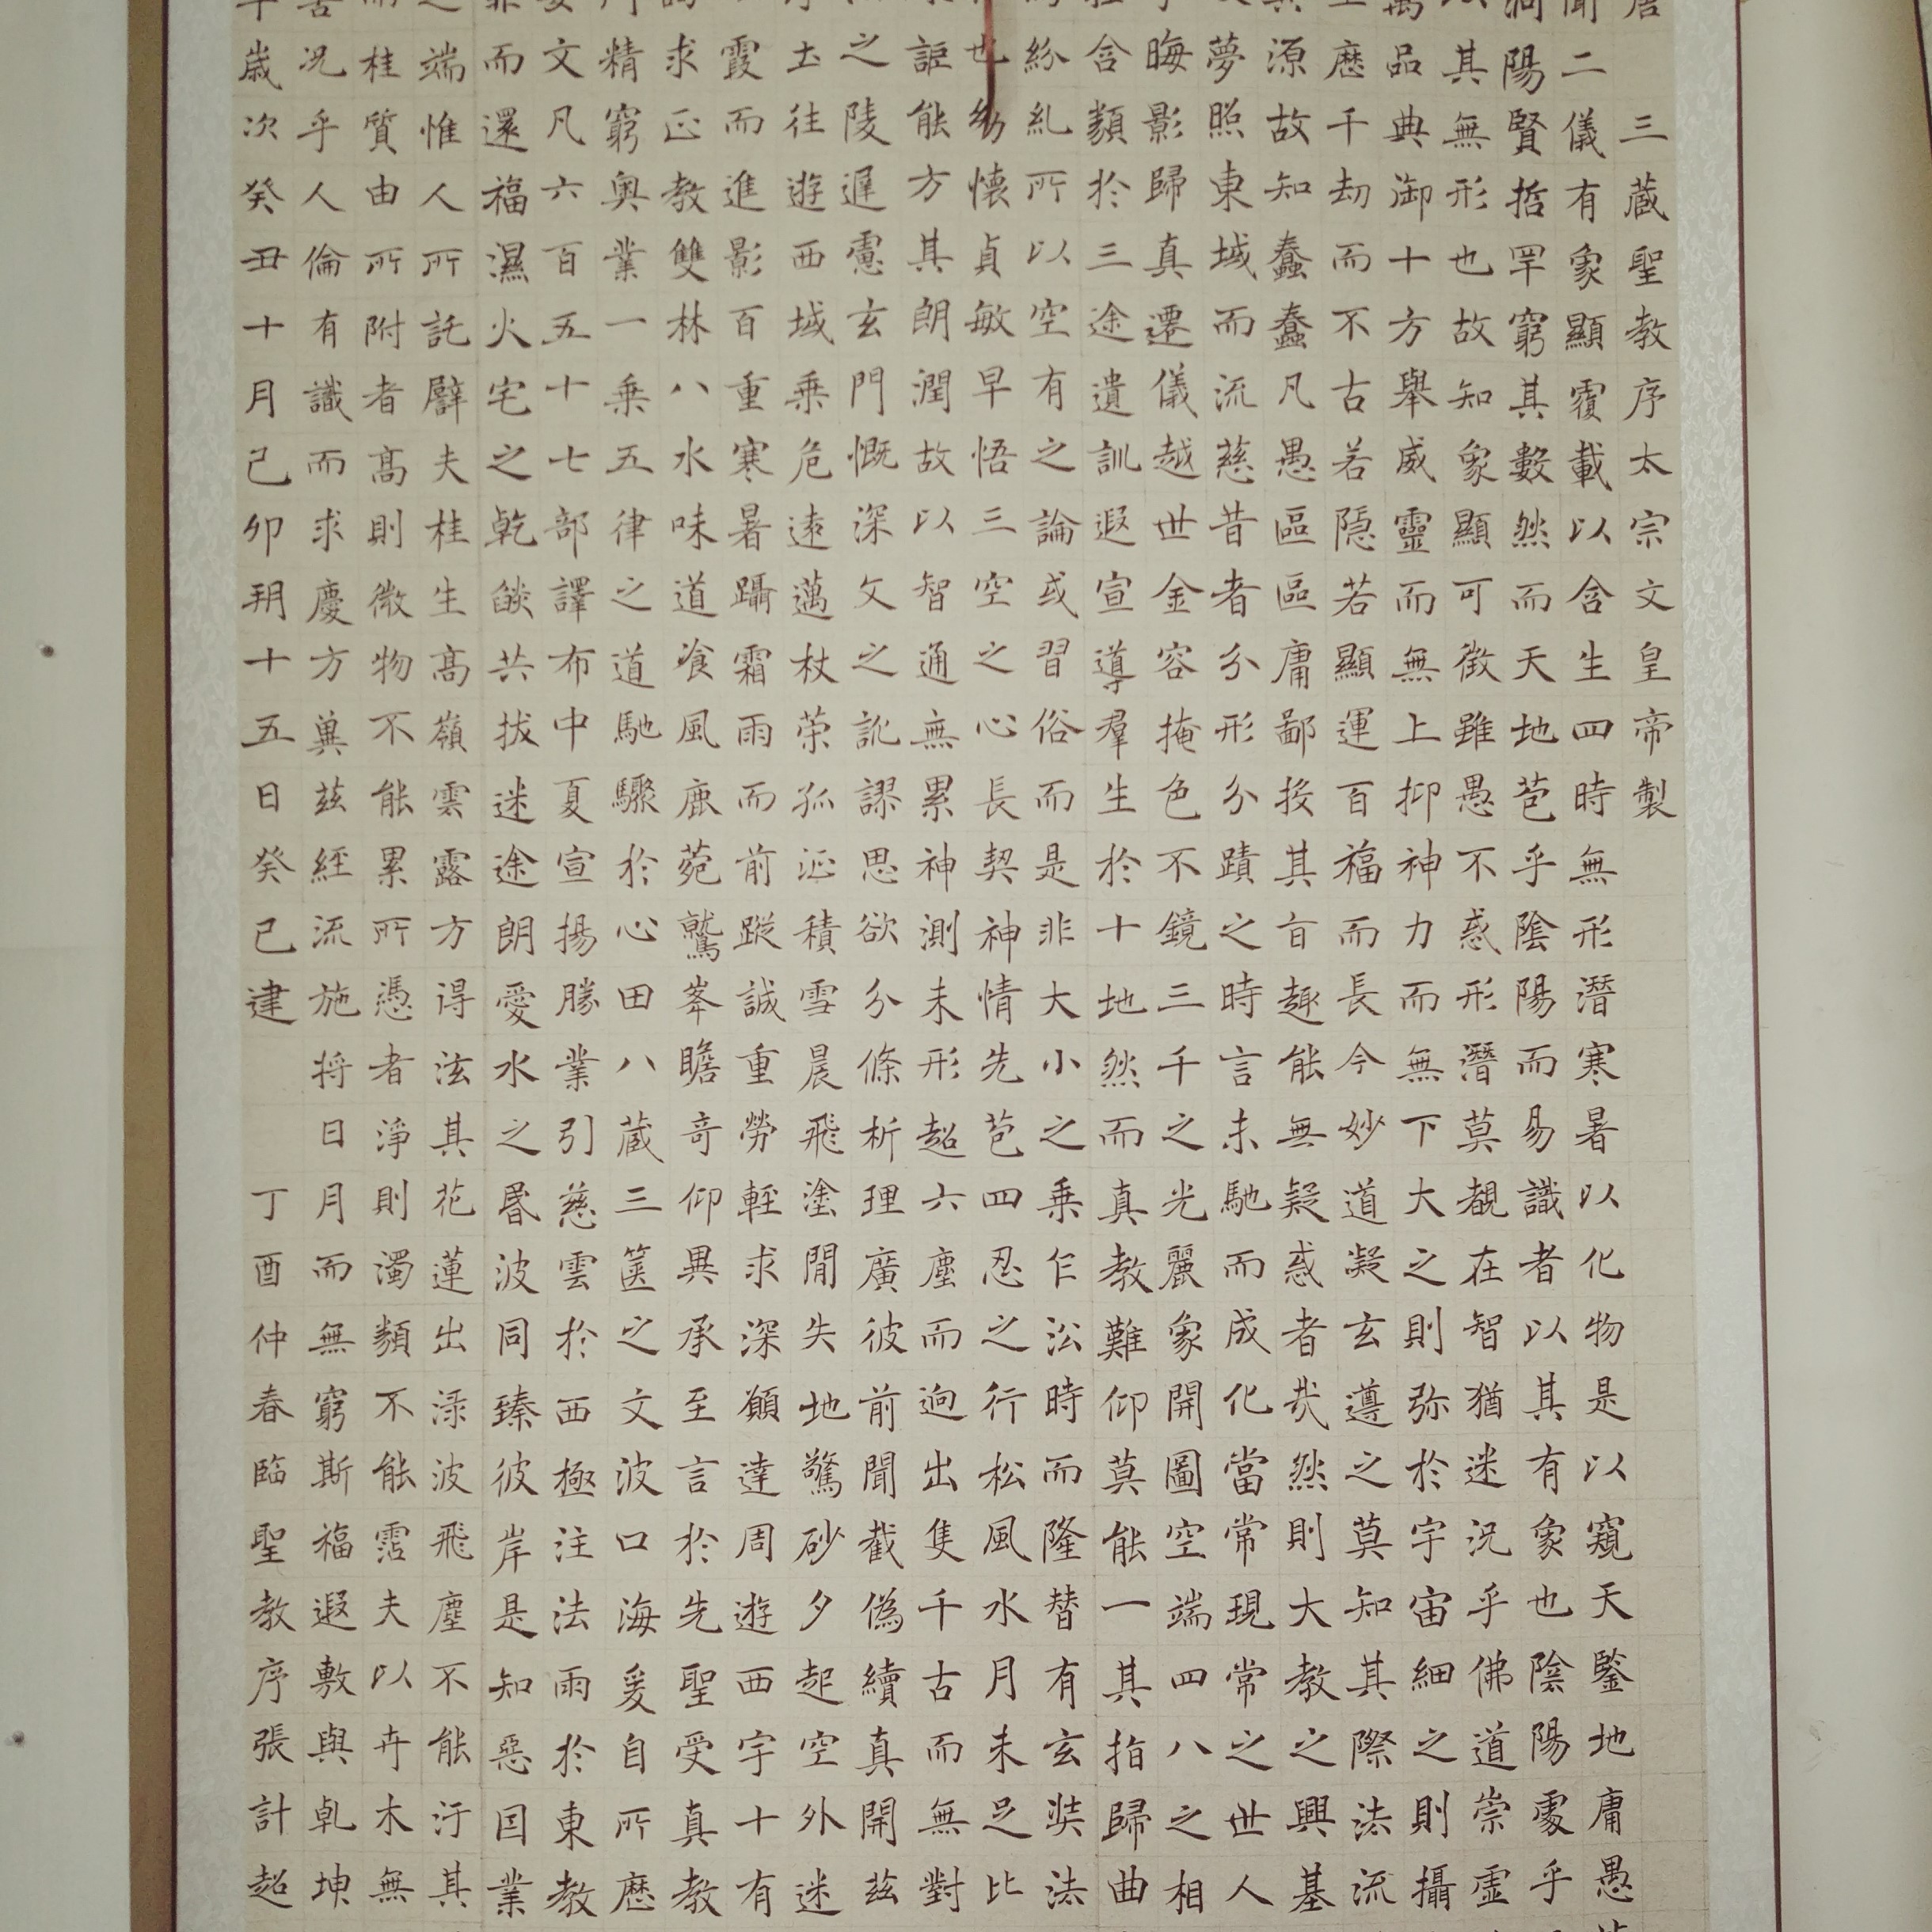 三藏聖教序太宗文皇帝製
聞二儀有象顯覆載以含生四時無形潛寒暑以化物是以窺天鑒地庸愚
洞陽賢哲罕窮其數然而天地苞乎陰陽而易識者以其有象也陰陽處乎
其無形也故知象顯可徵雖愚不惑形潛莫覩在智猶迷況乎佛道崇虛
萬品典御十方舉威靈而無上抑神力而無下大之則弥於宇宙細之則攝
歷千劫而不古若隱若顯運百福而長今妙道凝玄遵之莫知其際法流
源故知蠢蠢凡愚區區庸鄙投其旨趣能無疑惑者哉然則大教之興基
夢照東域而流慈昔者分形分蹟之時言未馳而成化當常現常之世人
晦影歸真遷儀越世金容掩色不鏡三千之光麗象開圖空端四八之相
含類於三途遺訓遐宣導羣生於十地然而真教難仰莫能一其指歸曲
紛糺所以空有之論或習俗而是非大小之乘乍沿時而隆替有玄奘法
也幼懷貞敏早悟三空之心長契神情先苞四忍之行松風水月未足比
詎能方其朗潤故以智通無累神測未形超六塵而逈出隻千古而無對
之陵遲慮玄門慨深文之訛謬思欲分條析理廣彼前聞截偽續真開茲
土往遊西域乘危遠邁杖策孤征積雪晨飛塗閒失地驚砂夕起空外迷
霞而進影百重寒暑躡霜雨而前蹤誠重勞輕求深願達周遊西宇十有
求正教雙林八水味道飡風鹿菀鷲峯瞻奇仰異承至言於先聖受真教
精窮奧業一乘五律之道馳驟於心田八藏三篋之文波口海爰自所歷
文凡六百五十七部譯布中夏宣揚勝業引慈雲於西極注法雨於東教
而還福濕火宅之乾燄共拔迷途朗愛水之昬波同臻彼岸是知惡因業
端惟人所託譬夫桂生高嶺雲露方得泫其花蓮出淥波飛塵不能汙其
桂質由所附者高則微物不能累所憑者淨則濁類不能霑夫以卉木無
況乎人倫有識而求慶方冀茲經流施將日月而無窮斯福遐敷與乹坤
歲次癸丑十月己卯朔十五日癸巳建 丁酉仲春臨聖教序張計超